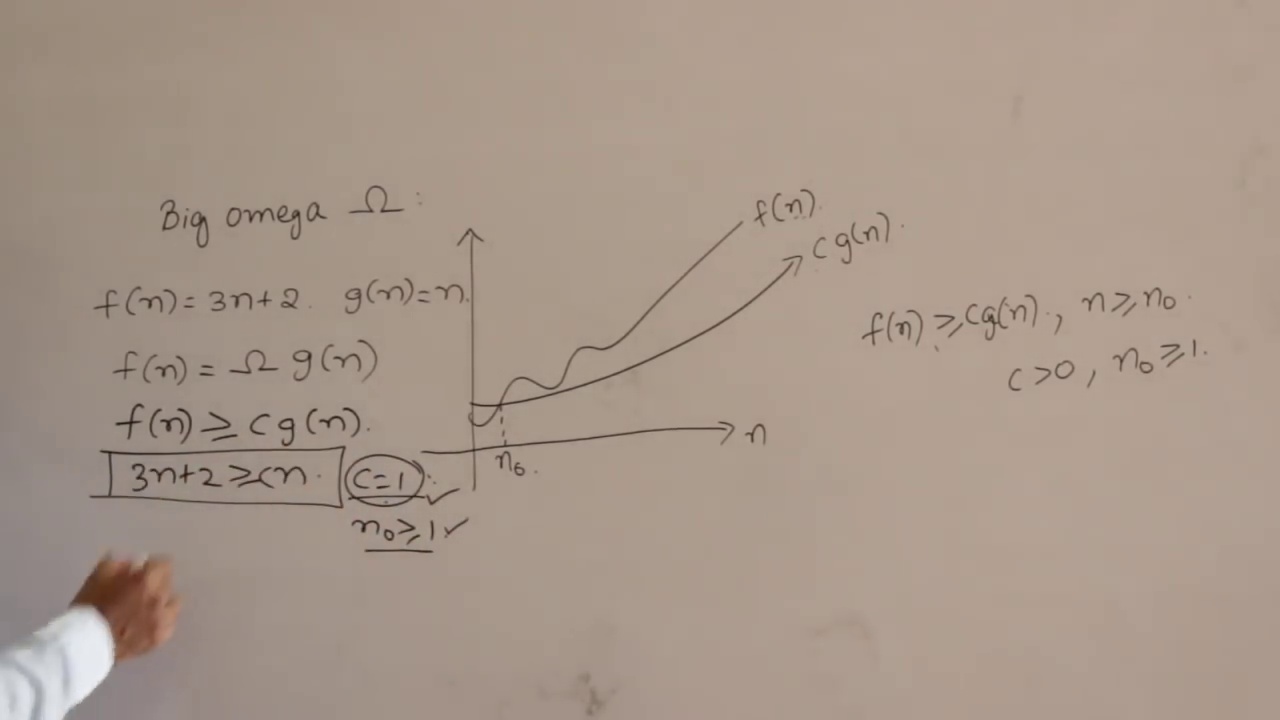 Big omega Ω :
f(n) = 3n+2. g(n) = n.
f(n) = Ω g(n)
f(n) ≥ c g(n).
3n+2 ≥ cn. c=1 ✓
n₀ ≥ 1 ✓
f(n).
c g(n).
n
n₀.
f(n) ≥ cg(n)., n ≥ n₀.
c > 0, n₀ ≥ 1.